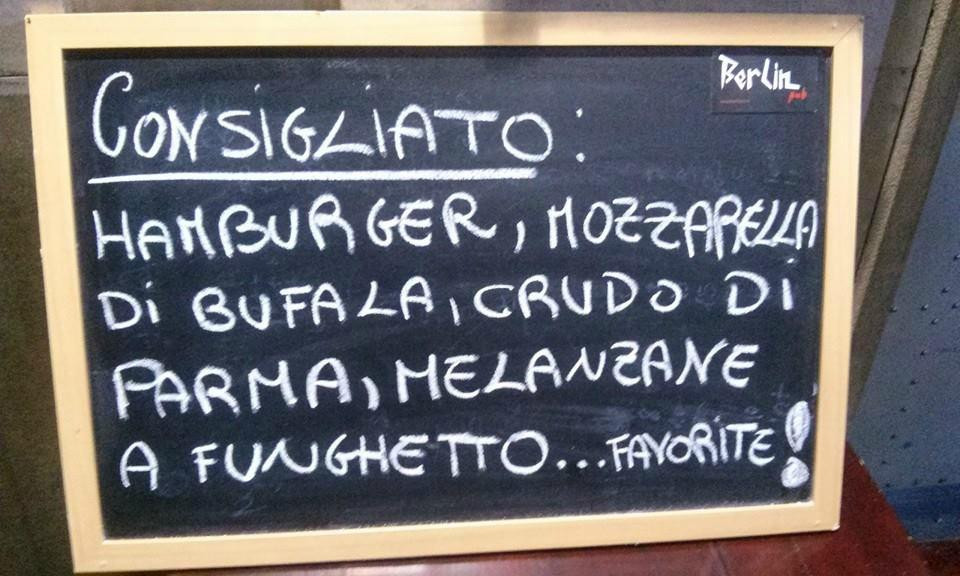 Berlin
pub
CONSIGLIATO:
HAMBURGER, MOZZARELLA
Di BUFALA, CRUDO Di
PARMA, MELANZANE
A FUNGHETTO...FAVORiTE!